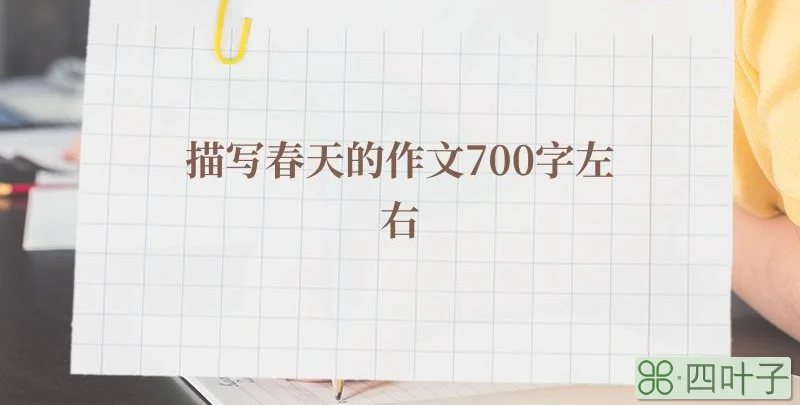 描写春天的作文700字左
右
四叶子